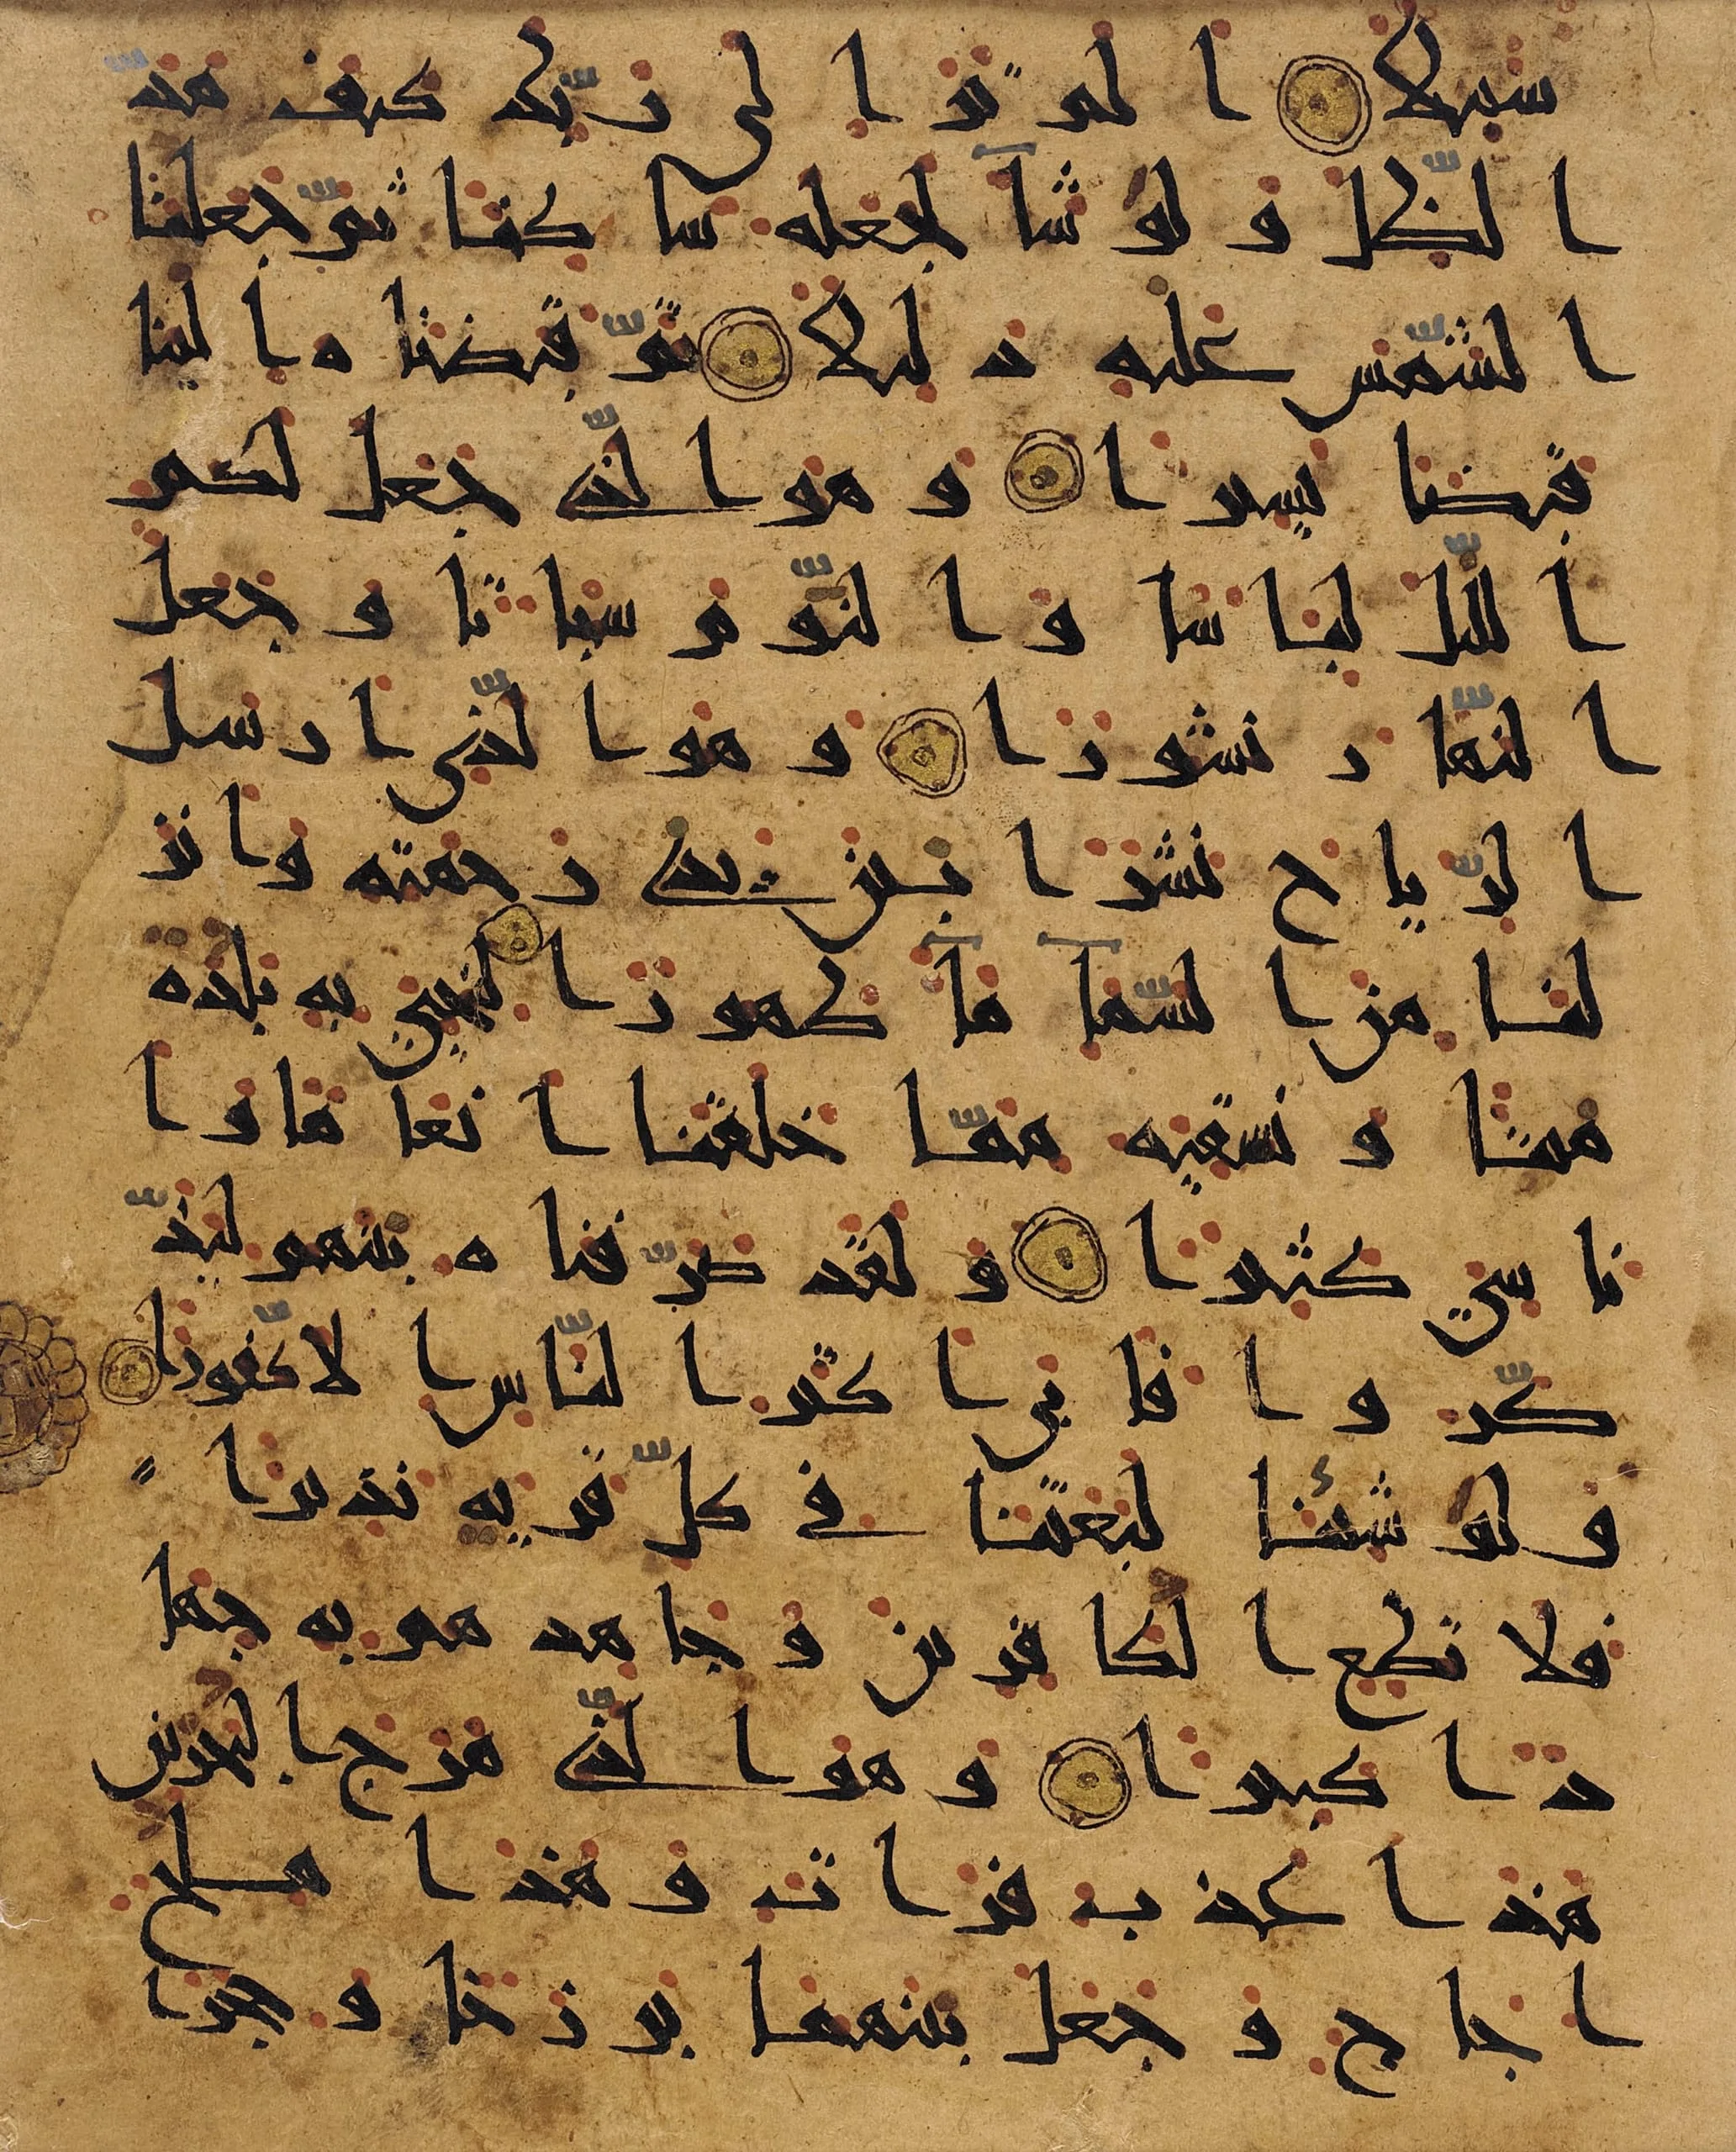 سبيلا الم تر الى ربّك كيف مدّ
الظّل ولو شآ لجعله ساكنا ثمّ جعلنا
الشّمس عليه دليلا ثمّ قبضناه الينا
قبضا يسيرا وهو الّذي جعل لكم
الّليل لباسا والنّوم سباتا وجعل
النّهار نشورا وهو الّذي ارسل
الرّياح نشرا بين يدي رحمته وانز
لنا من السّمآ مآ طهورا لنحيي به بلدة
ميتا ونسقيه ممّا خلقنا انعاما وا
ناسي كثيرا ولقد صرّفناه بينهم ليذّ
كّروا فابى اكثر النّاس الا كّفورا
ولو شئنا لبعثنا في كلّ قرية نذيرا
فلا تطع الكافرين وجاهدهم به جها
دا كبيرا وهو الّذي مرج البحرين
هذا عذب فرات وهذا ملح
اجاج وجعل بينهما برزخا وحجرا